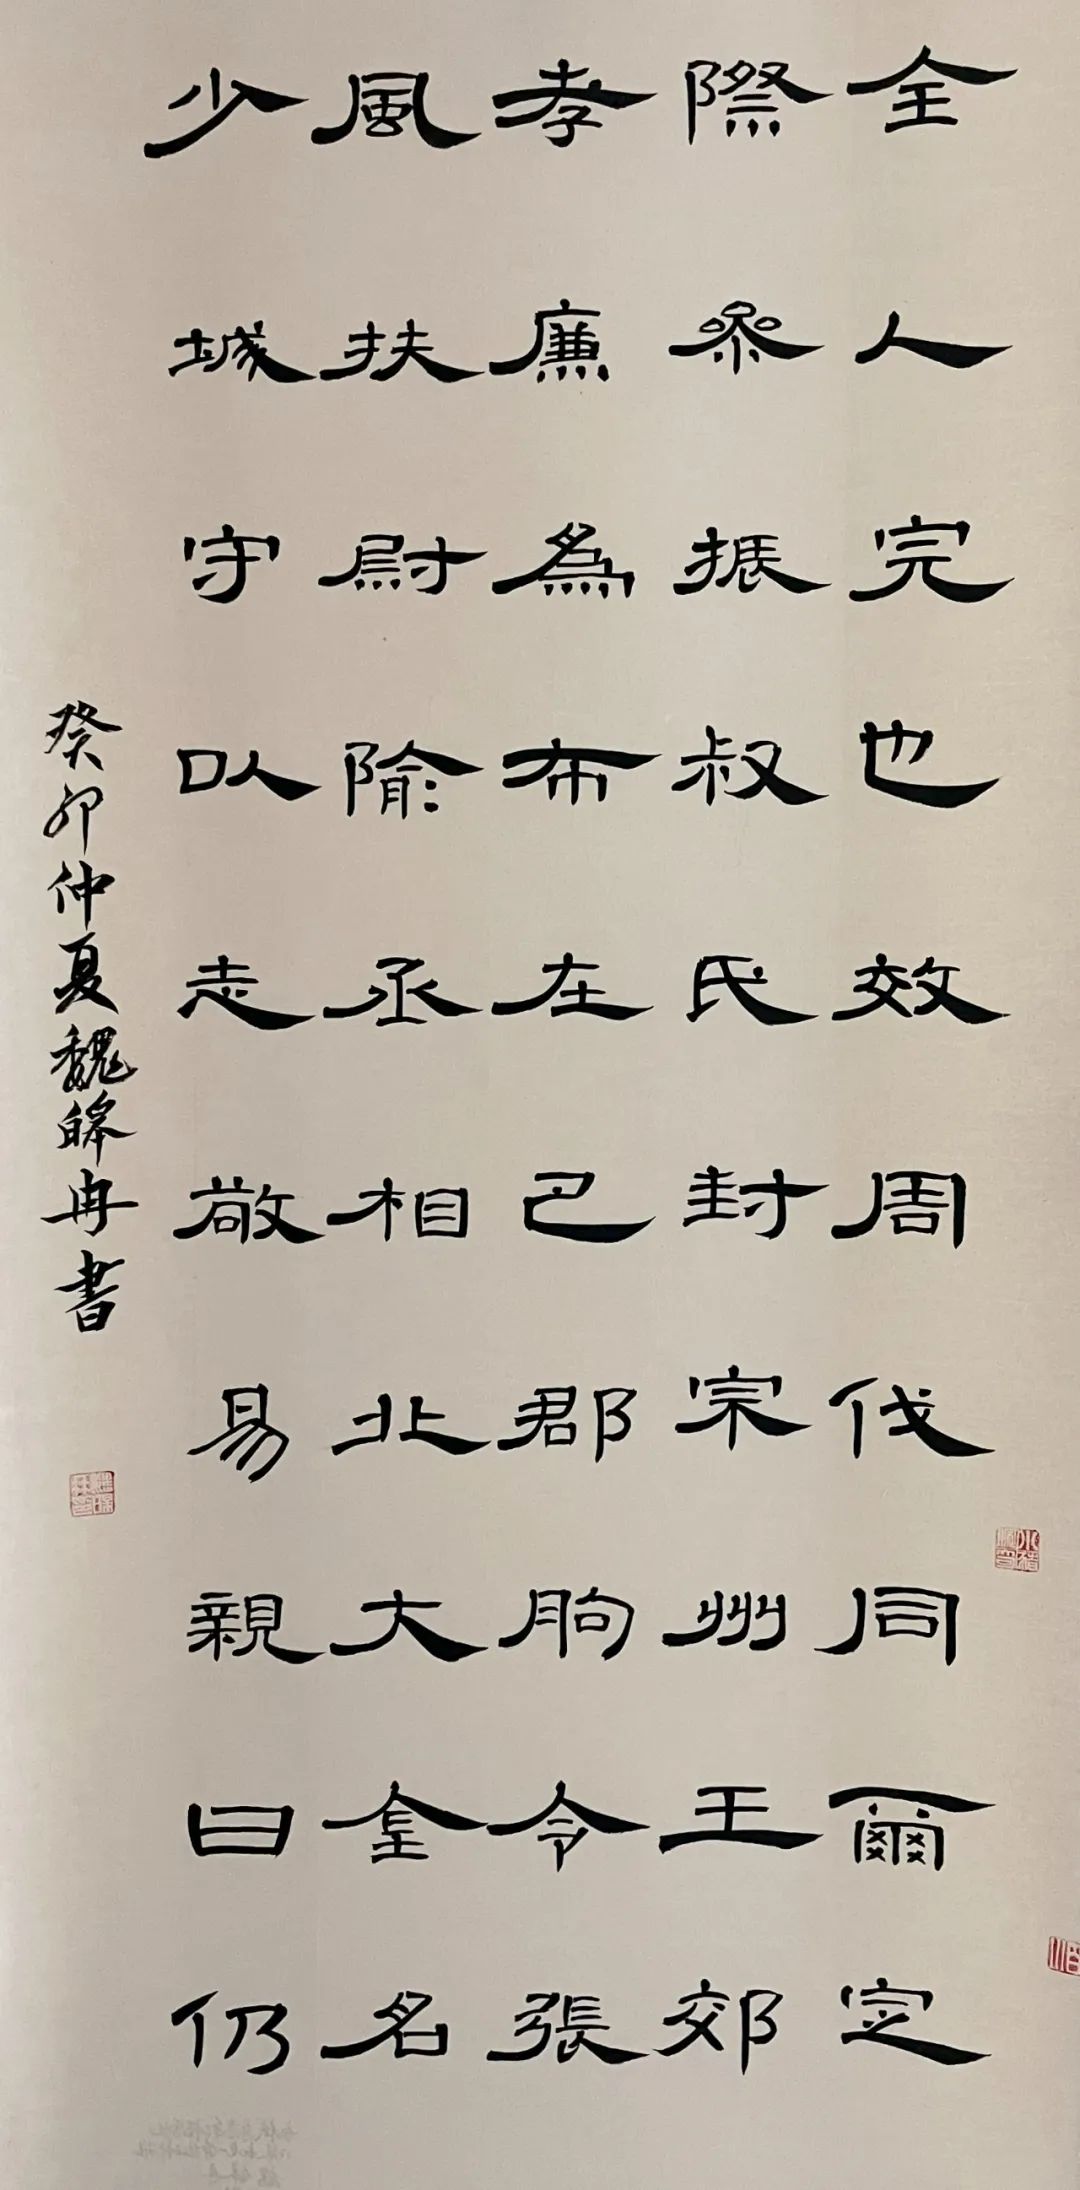 全人完也效周伐同爾定
際參振叔氏封宗州王郊
孝廉為布在巴郡朐令張
風扶尉隃丞相北大奎名
少城守以志敬易親曰仍
癸卯仲夏魏皞冉書